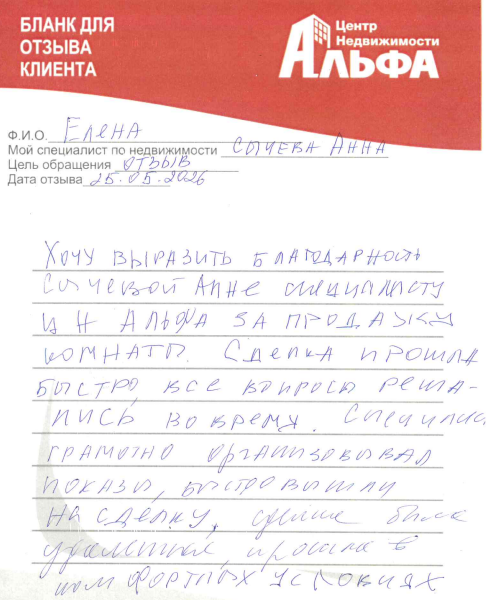 БЛАНК ДЛЯ
ОТЗЫВА
КЛИЕНТА
Центр
Недвижимости
АЛЬФА
Ф.И.О. Елена
Мой специалист по недвижимости Сычева Анна
Цель обращения отзыв
Дата отзыва 25.05.2026
Хочу выразить благодарность
Сычевой Анне специалисту
ЦН Альфа за продажу
комнаты. Сделка прошла
быстро, все вопросы реша-
лись во время. Специалист
грамотно организовывал
показы, быстро вышли
на сделку, сделка была
удаленная, прошла в
комфортных условиях